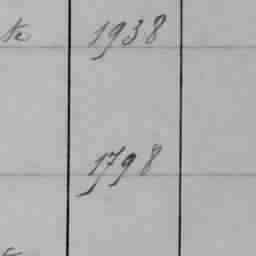 te 1938
1798